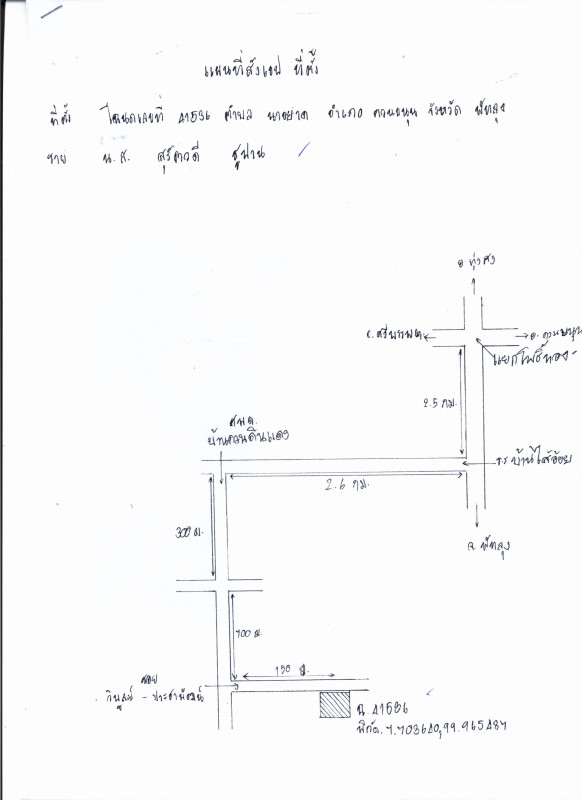 แผนที่สังเขป ที่ตั้ง
ที่ตั้ง โฉนดเลขที่ 41536 ตำบล นาขยาด อำเภอ ควนขนุน จังหวัด พัทลุง
ราย น.ส. สุรัตวดี ชูปาน
อ ทุ่งสง
อ. ศรีนครินทร์
อ. ควนขนุน
แยกโพธิ์ทอง
2.5 กม.
ศพด.
บ้านควนดินแดง
รร บ้านไสอ้อย
2.6 กม.
300 ม.
จ. พัทลุง
700 ม.
150 ม.
ซอย
วิบูลย์ - ประชาพัฒน์
ฉ. 41536
พิกัด. 7.703640,99.965487